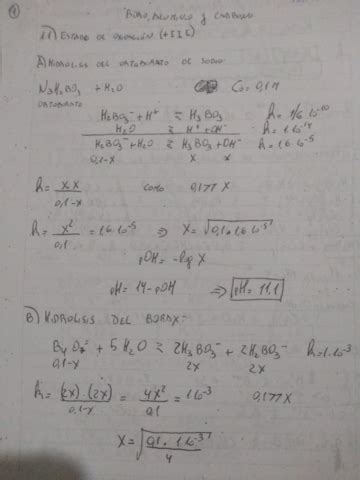 1
BORO, ALUMINIO y CARBONO
1.1) ESTADO DE OXIDACIÓN (+III)
A) HIDRÓLISIS DEL ORTOBORATO DE SODIO:
+ H2O C0 = 0,1M
ORTOBORATO
H2BO3⁻ + H⁺ ⇄ H3BO3
H2O ⇄ H⁺ + OH⁻ K = 1·10⁻¹⁴
H2BO3⁻ + H2O ⇄ H3BO3 + OH⁻ K = 1,6·10⁻⁵
0,1-X X X
K = X·X / 0,1-X como 0,1>>X
K = X² / 0,1 = 1,6·10⁻⁵ ⇒ X = √0,1·1,6·10⁻⁵
pOH = -log X
pH = 14 - pOH ⇒ pH = 11,1
B) HIDRÓLISIS DEL BORAX:
B4O7²⁻ + 5 H2O ⇄ 2H3BO3 + 2H2BO3⁻ K = 1·10⁻³
0,1-X 2X 2X
K = (2X)·(2X) / 0,1-X = 4X² / 0,1 = 1·10⁻³ 0,1>>X
X = √0,1·1·10⁻³ / 4